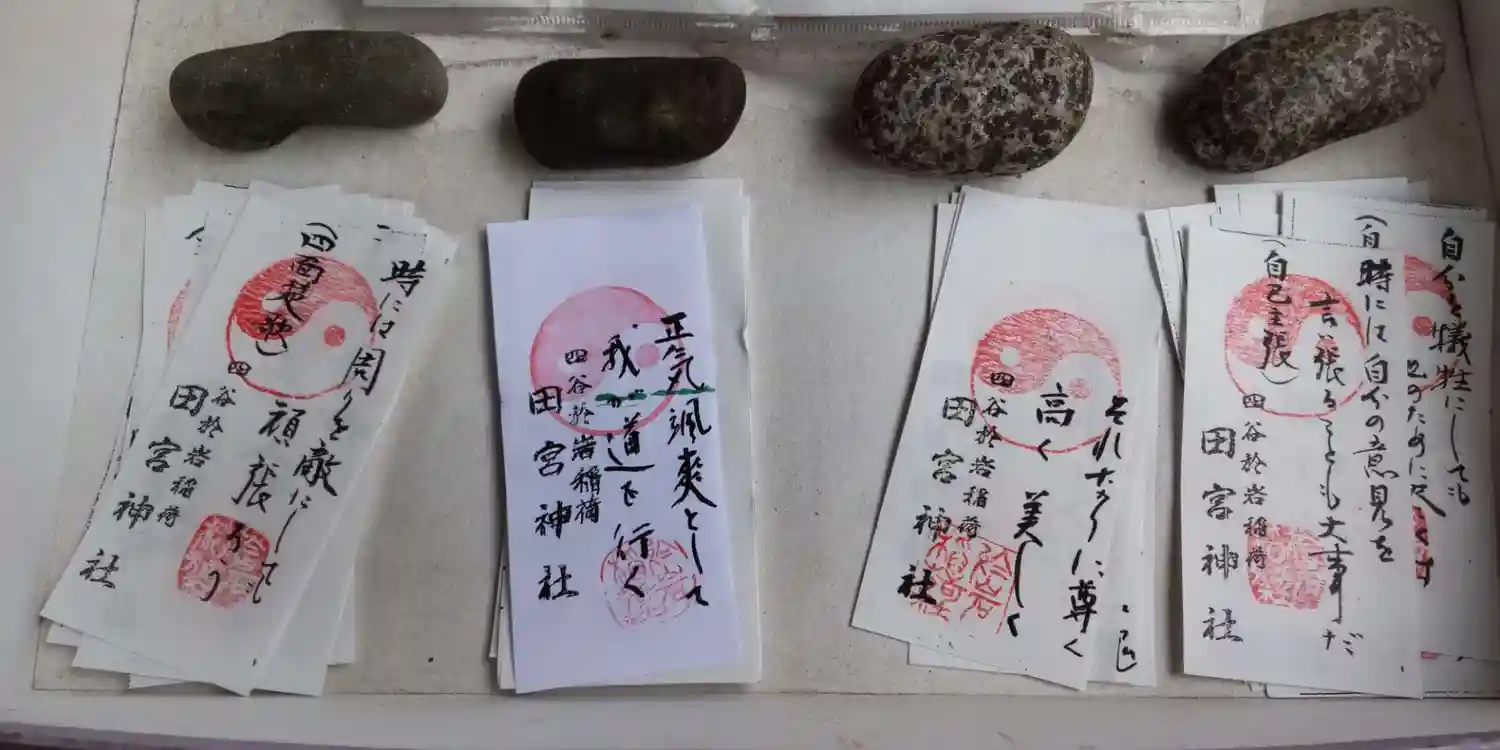 時には周りを敵にして
頑張ろう
(四面楚歌)
四谷於岩稲荷
田宮神社
正気颯爽として
我が道を行く
四谷於岩稲荷
田宮神社
に尊く
高く美しく
四谷於岩稲荷
田宮神社
自分を犠牲にしても
のために尽くす
(自
時には自分の意見を
言い張ることも大事だ
(自己主張)
四谷於岩稲荷
田宮神社